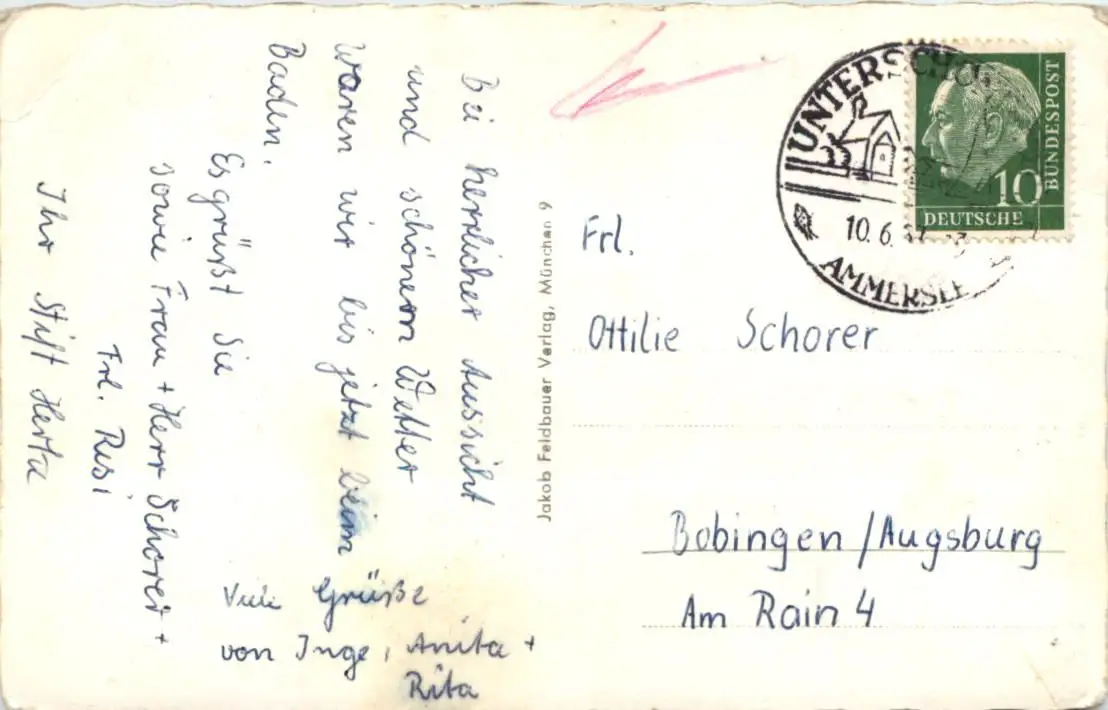 Bei herrlicher Aussicht
und schönem Wetter
waren wir bis jetzt beim
Baden.
Es grüßt Sie
sowie Frau + Herr Schorer +
Frl. Resi
Ihr Stift Herta
Viele Grüße
von Inge, Anita +
Rita
Jakob Feldbauer Verlag, München 9
UNTERSCHO
10.6.57
AMMERSEE
10
DEUTSCHE
BUNDESPOST
Frl.
Ottilie Schorer
Bobingen/Augsburg
Am Rain 4